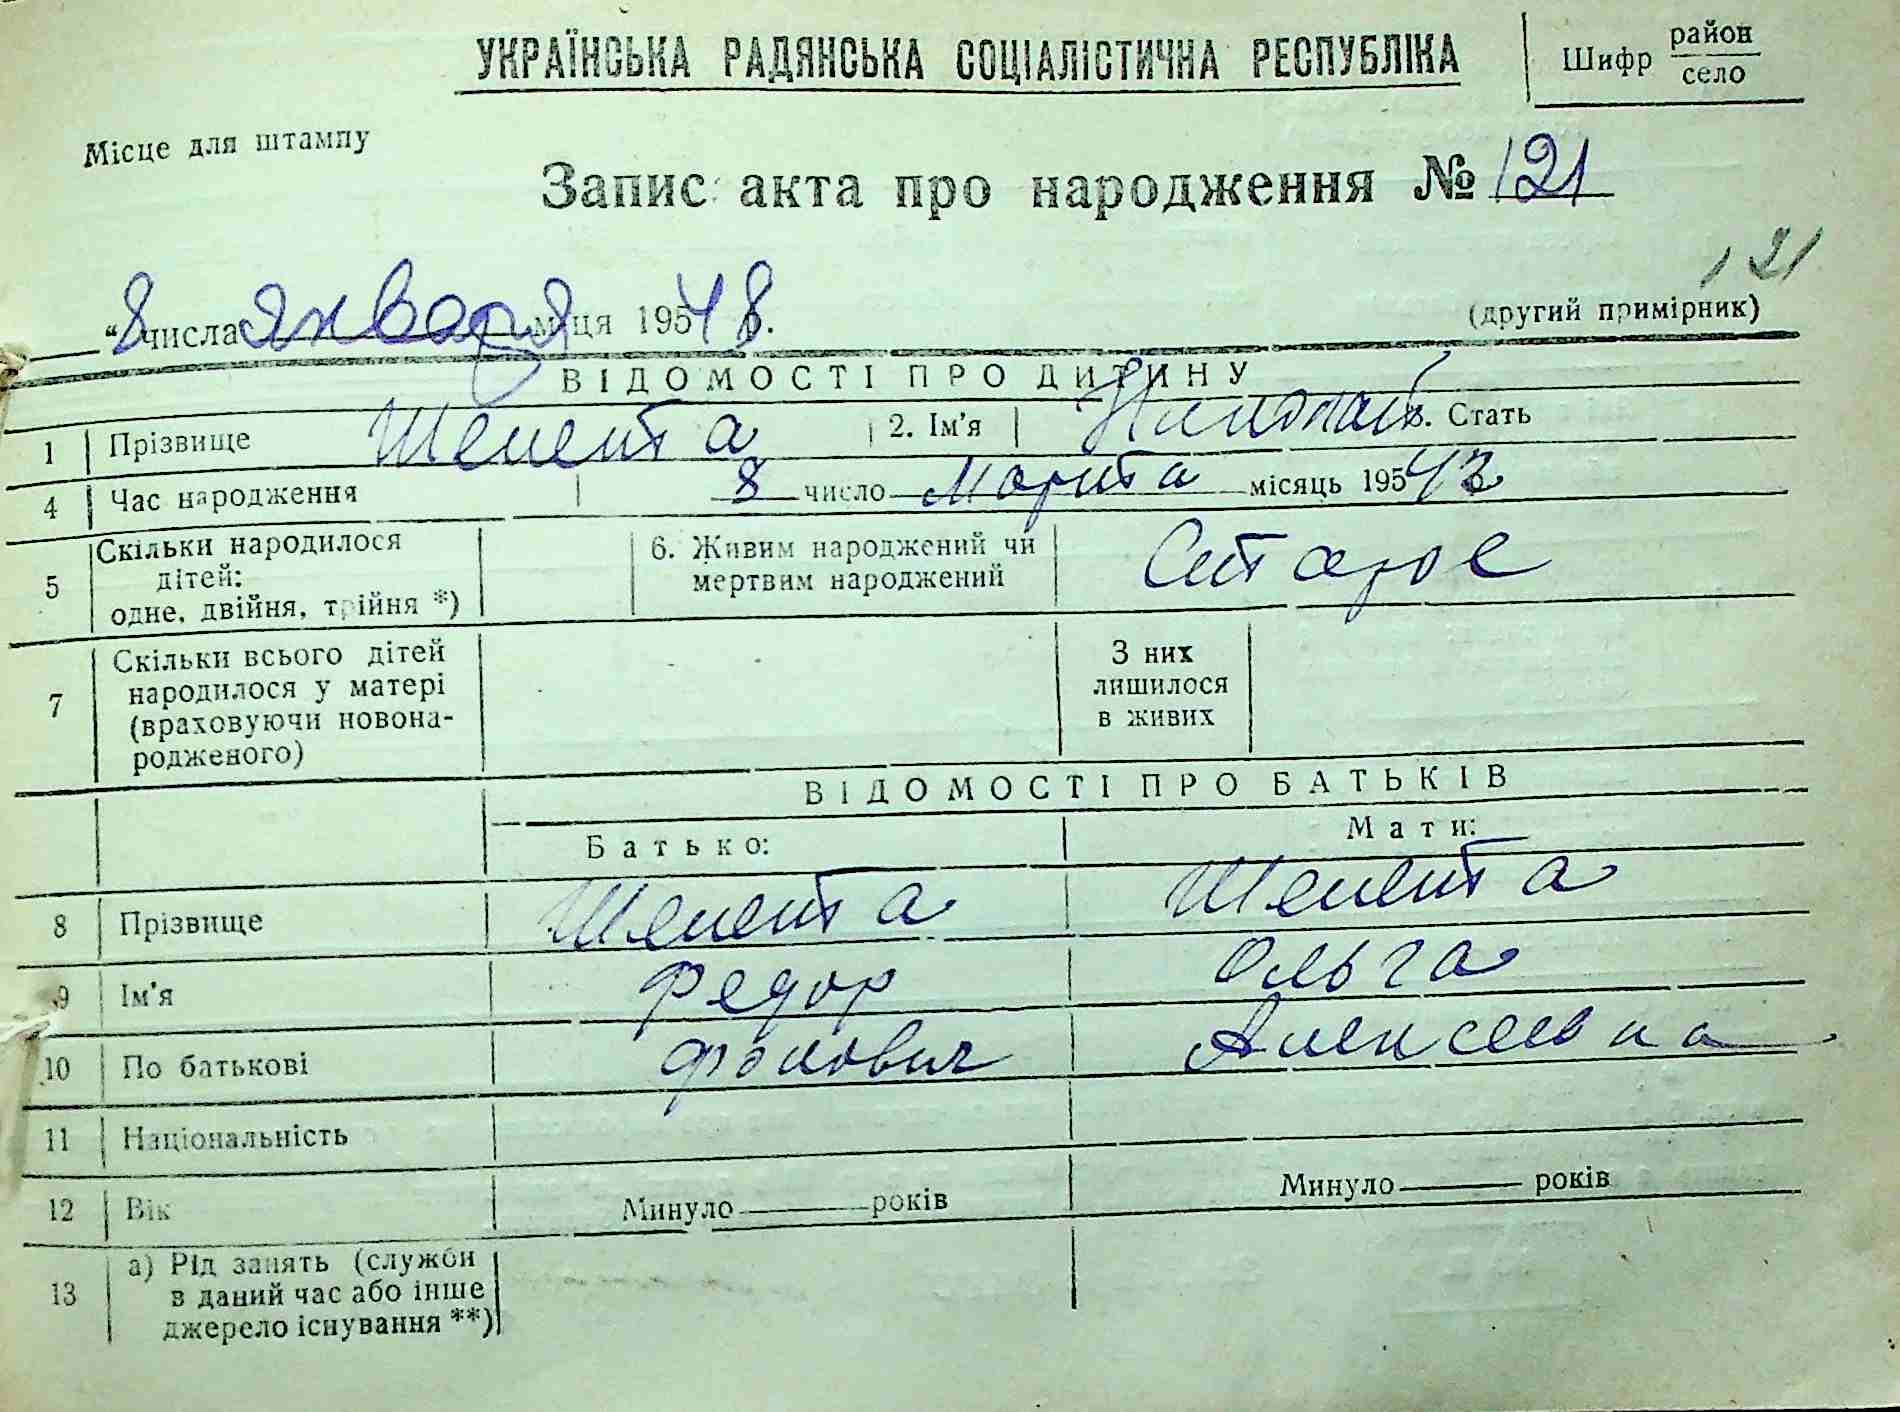 УКРАЇНСЬКА РАДЯНСЬКА СОЦІАЛІСТИЧНА РЕСПУБЛІКА
Шифр район
село
Місце для штампу
Запис акта про народження № 121
121
"8 числа января м-ця 195 48 р.
(другий примірник)
ВІДОМОСТІ ПРО ДИТИНУ
1 Прізвище Шепента 2. Ім'я Николай 3. Стать
4 Час народження 8 число марта місяць 195 43
5 Скільки народилося дітей: одне, двійня, трійня *) 6. Живим народжений чи мертвим народжений
7 Скільки всього дітей народилося у матері (враховуючи новона-родженого) З них лишилося в живих
ВІДОМОСТІ ПРО БАТЬКІВ
Батько: Мати:
8 Прізвище Шепента Шепента
9 Ім'я Федор Ольга
10 По батькові Алексеевна
11 Національність
12 Вік Минуло років Минуло років
13 а) Рід занять (служби в даний час або інше джерело існування **)